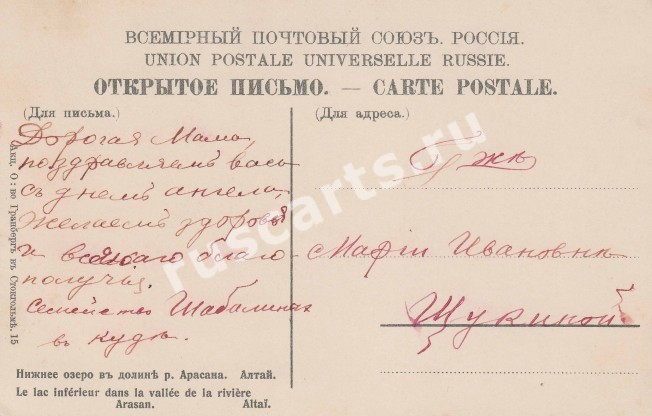 ВСЕМІРНЫЙ ПОЧТОВЫЙ СОЮЗЪ. РОССІЯ.
UNION POSTALE UNIVERSELLE RUSSIE.
ОТКРЫТОЕ ПИСЬМО. — CARTE POSTALE.
(Для письма.)
Дорогая Мама,
поздравляемъ васъ
съ днемъ ангела,
желаемъ здоровья
и всякаго благо
получья.
Семейство Шабалиныхъ
(Для адреса.)
Гжѣ
Маріи Ивановнѣ
Щукиной
Акц. О-во Гранбергъ въ Стокгольмѣ. 15
Нижнее озеро въ долинѣ р. Арасана. Алтай.
Le lac inférieur dans la vallée de la rivière
Arasan. Altaï.
ruscarts.ru